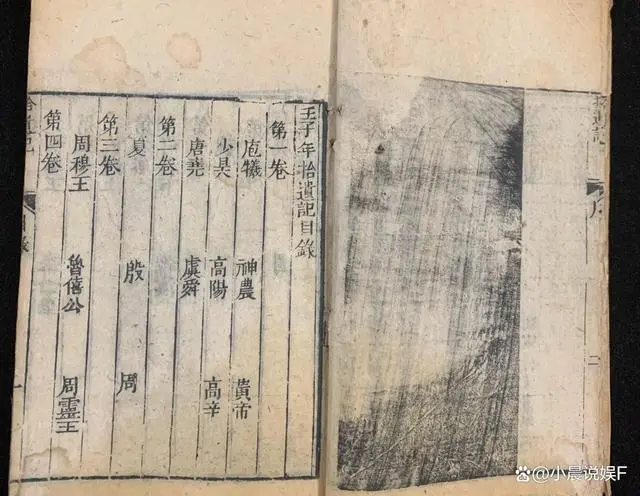 二
王子年拾遺記目錄
第一卷
庖犧 神農 黃帝
少昊 高陽 高辛
唐堯 虞舜
第二卷
夏 殷 周
第三卷
周穆王 魯僖公 周靈王
第四卷
拾遺記 目錄 一
小晨说娱F